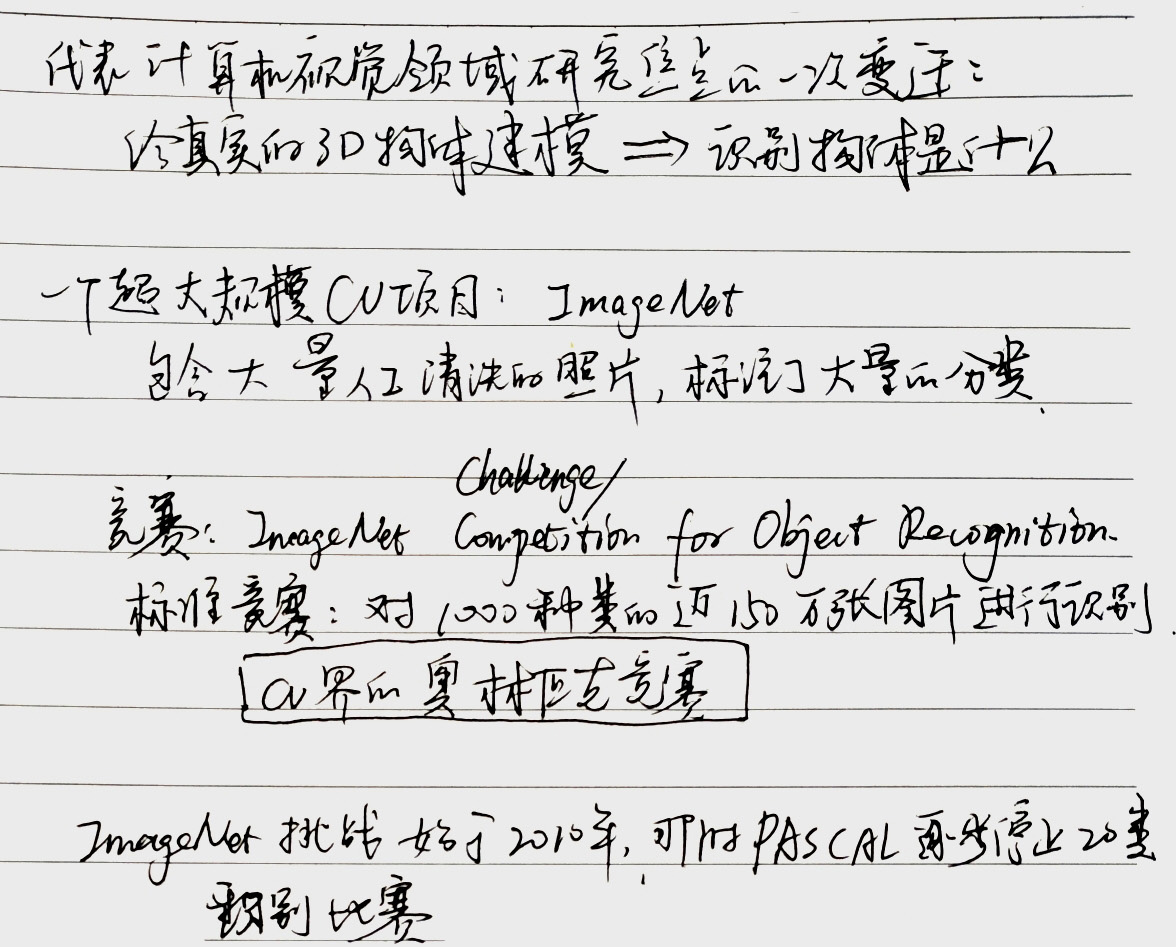 代表计算机视觉领域研究焦点的一次变迁：
给真实的3D物体建模 ⇒ 识别物体是什么
一个超大规模CV项目：ImageNet
包含大量人工清洗的照片，标注了大量的分类.
Challenge/
竞赛：ImageNet Competition for Object Recognition.
标准竞赛：对1000种类的近150万张图片进行识别.
CV界的奥林匹克竞赛
ImageNet 挑战 始于2010年，那时PASCAL 停止20类
识别比赛